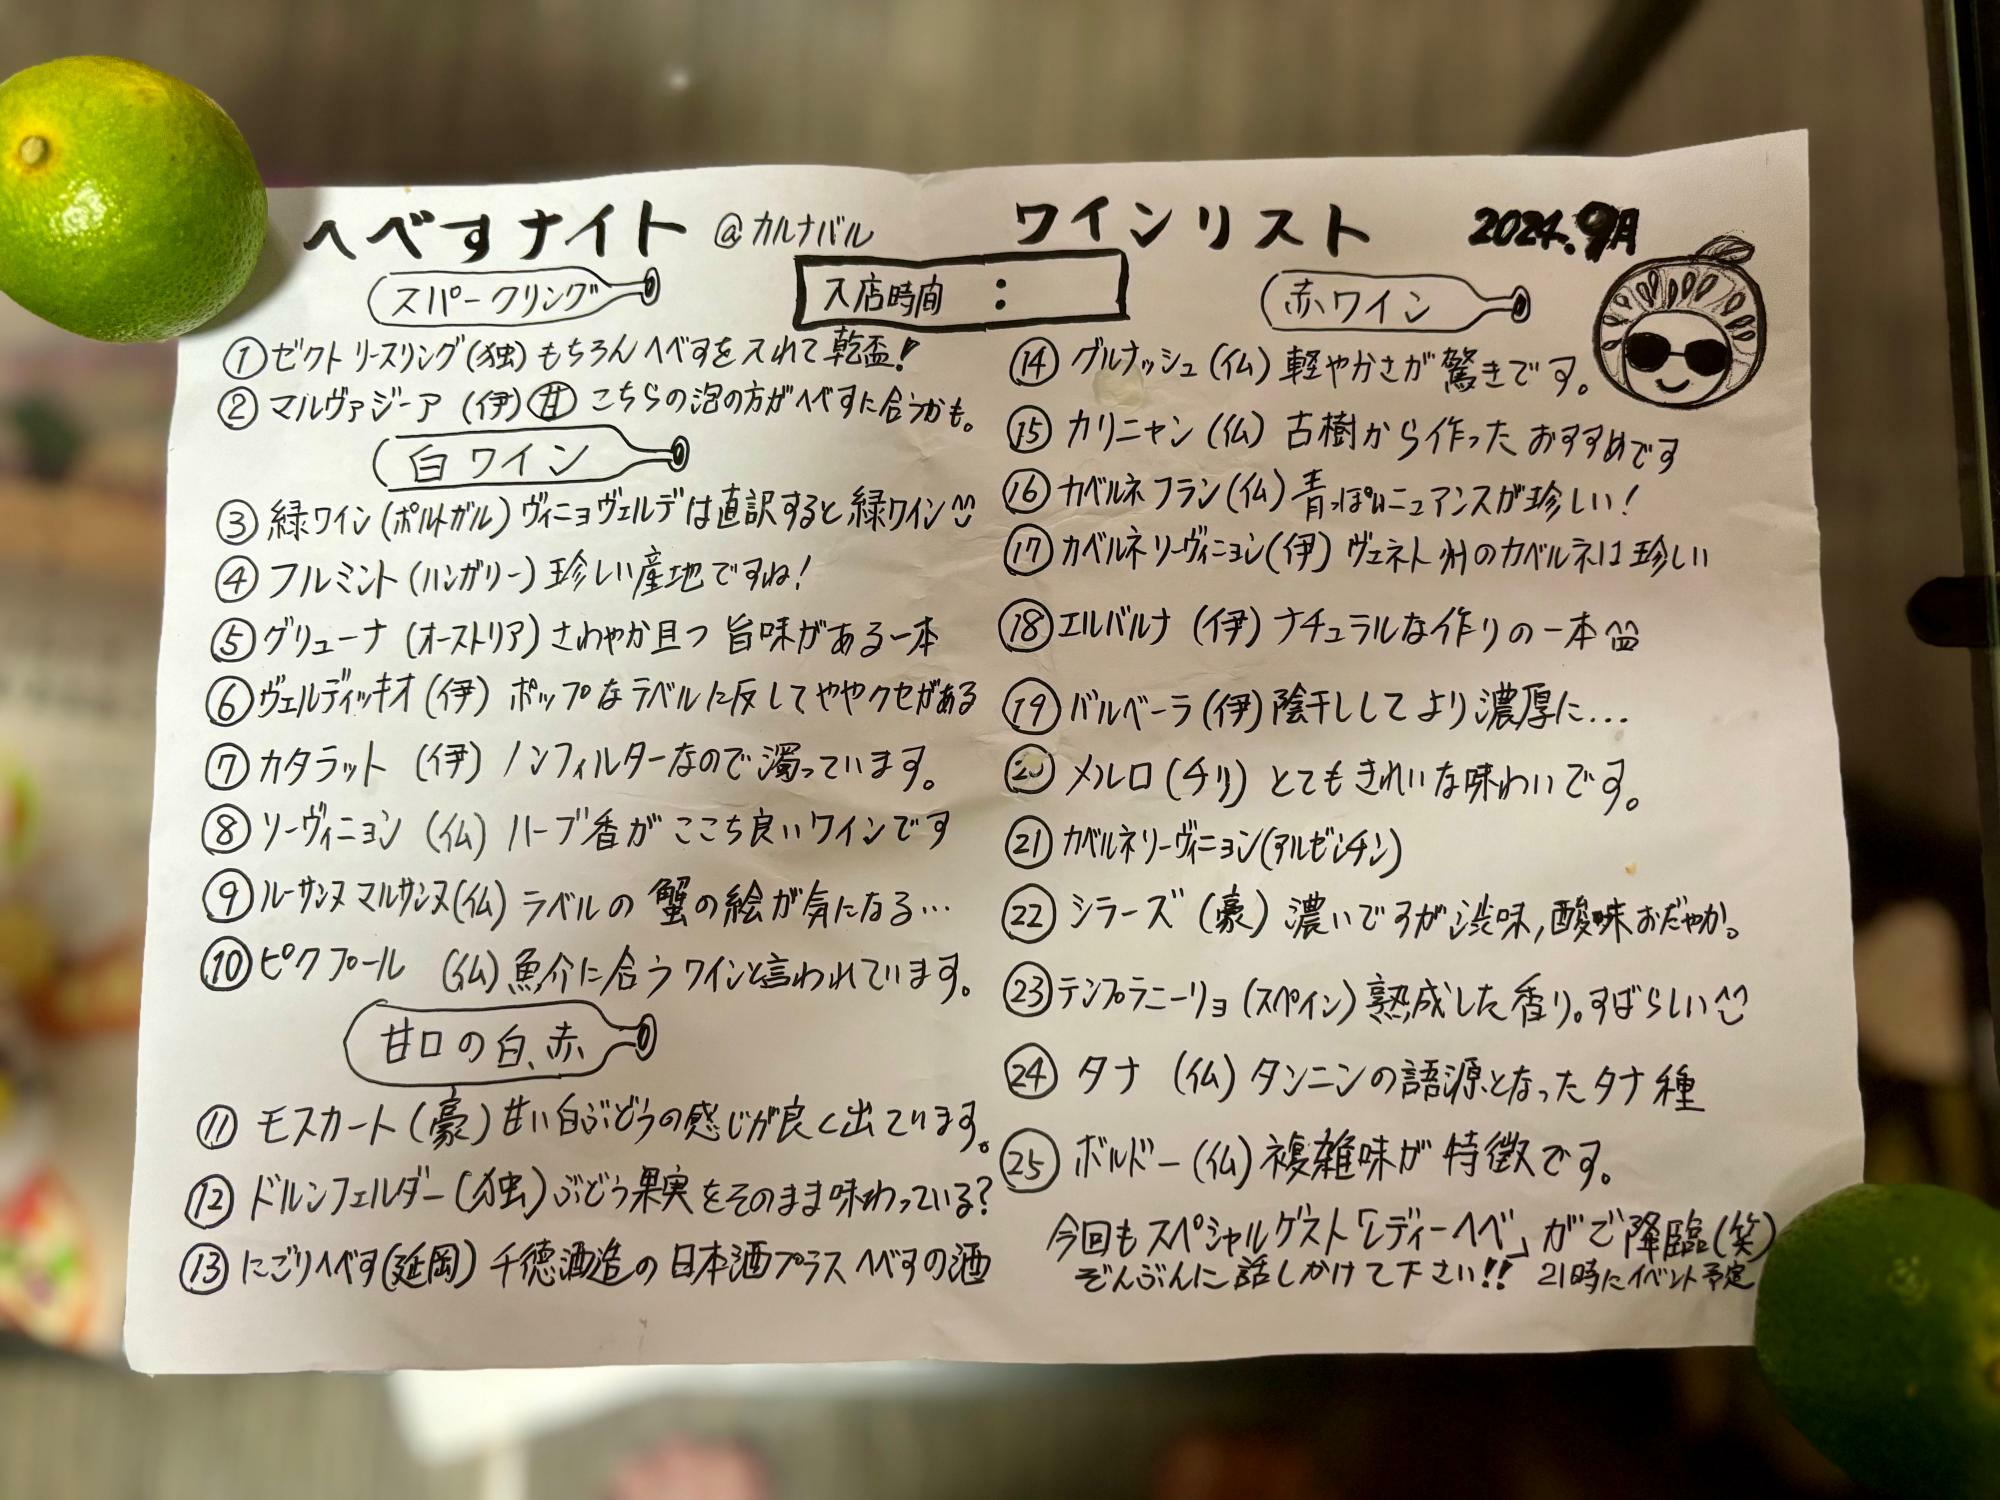 へべすナイト @カルナバル ワインリスト 2024.9月
入店時間 :
スパークリング
①ゼクト リースリング(独) もちろんへべすを入れて乾盃!
②マルヴァジーア (伊) 甘 こちらの泡の方がへべすに合うかも。
白ワイン
③緑ワイン(ポルトガル) ヴィニョヴェルデは直訳すると緑ワイン
④フルミント(ハンガリー) 珍しい産地ですね!
⑤グリューナ (オーストリア) さわやか且つ 旨味がある一本
⑥ヴェルディッキオ(伊) ポップなラベルに反してややクセがある
⑦カタラット (伊) ノンフィルターなので濁っています。
⑧ソーヴィニョン (仏) ハーブ香が ここち良いワインです
⑨ルーサンヌ マルサンヌ(仏) ラベルの 蟹の絵が気になる…
⑩ピクプール (仏) 魚介に合うワインと言われています。
甘口の白、赤
⑪モスカート(豪) 甘い白ぶどうの感じが良く出ています。
⑫ドルンフェルダー(独) ぶどう果実をそのまま味わっている?
⑬にごりへべす(延岡) 千徳酒造の日本酒プラスへべすの酒
赤ワイン
⑭グルナッシュ(仏) 軽やかさが驚きです。
⑮カリニャン(仏) 古樹から作ったおすすめです
⑯カベルネフラン(仏) 青っぽいニュアンスが珍しい!
⑰カベルネソーヴィニョン(伊) ヴェネト州のカベルネは珍しい
⑱エルバルナ (伊) ナチュラルな作りの一本
⑲バルベーラ(伊) 陰干ししてより濃厚に…
⑳メルロ(チリ) とてもきれいな味わいです。
㉑カベルネソーヴィニョン(アルゼンチン)
㉒シラーズ (豪) 濃いですが渋味,酸味おだやか。
㉓テンプラニーリョ(スペイン) 熟成した香り。すばらしい
㉔タナ (仏) タンニンの語源となったタナ種
㉕ボルドー(仏) 複雑味が特徴です。
今回もスペシャルゲスト「レディーヘベ」がご降臨(笑)
ぞんぶんに話しかけて下さい!! 21時にイベント予定